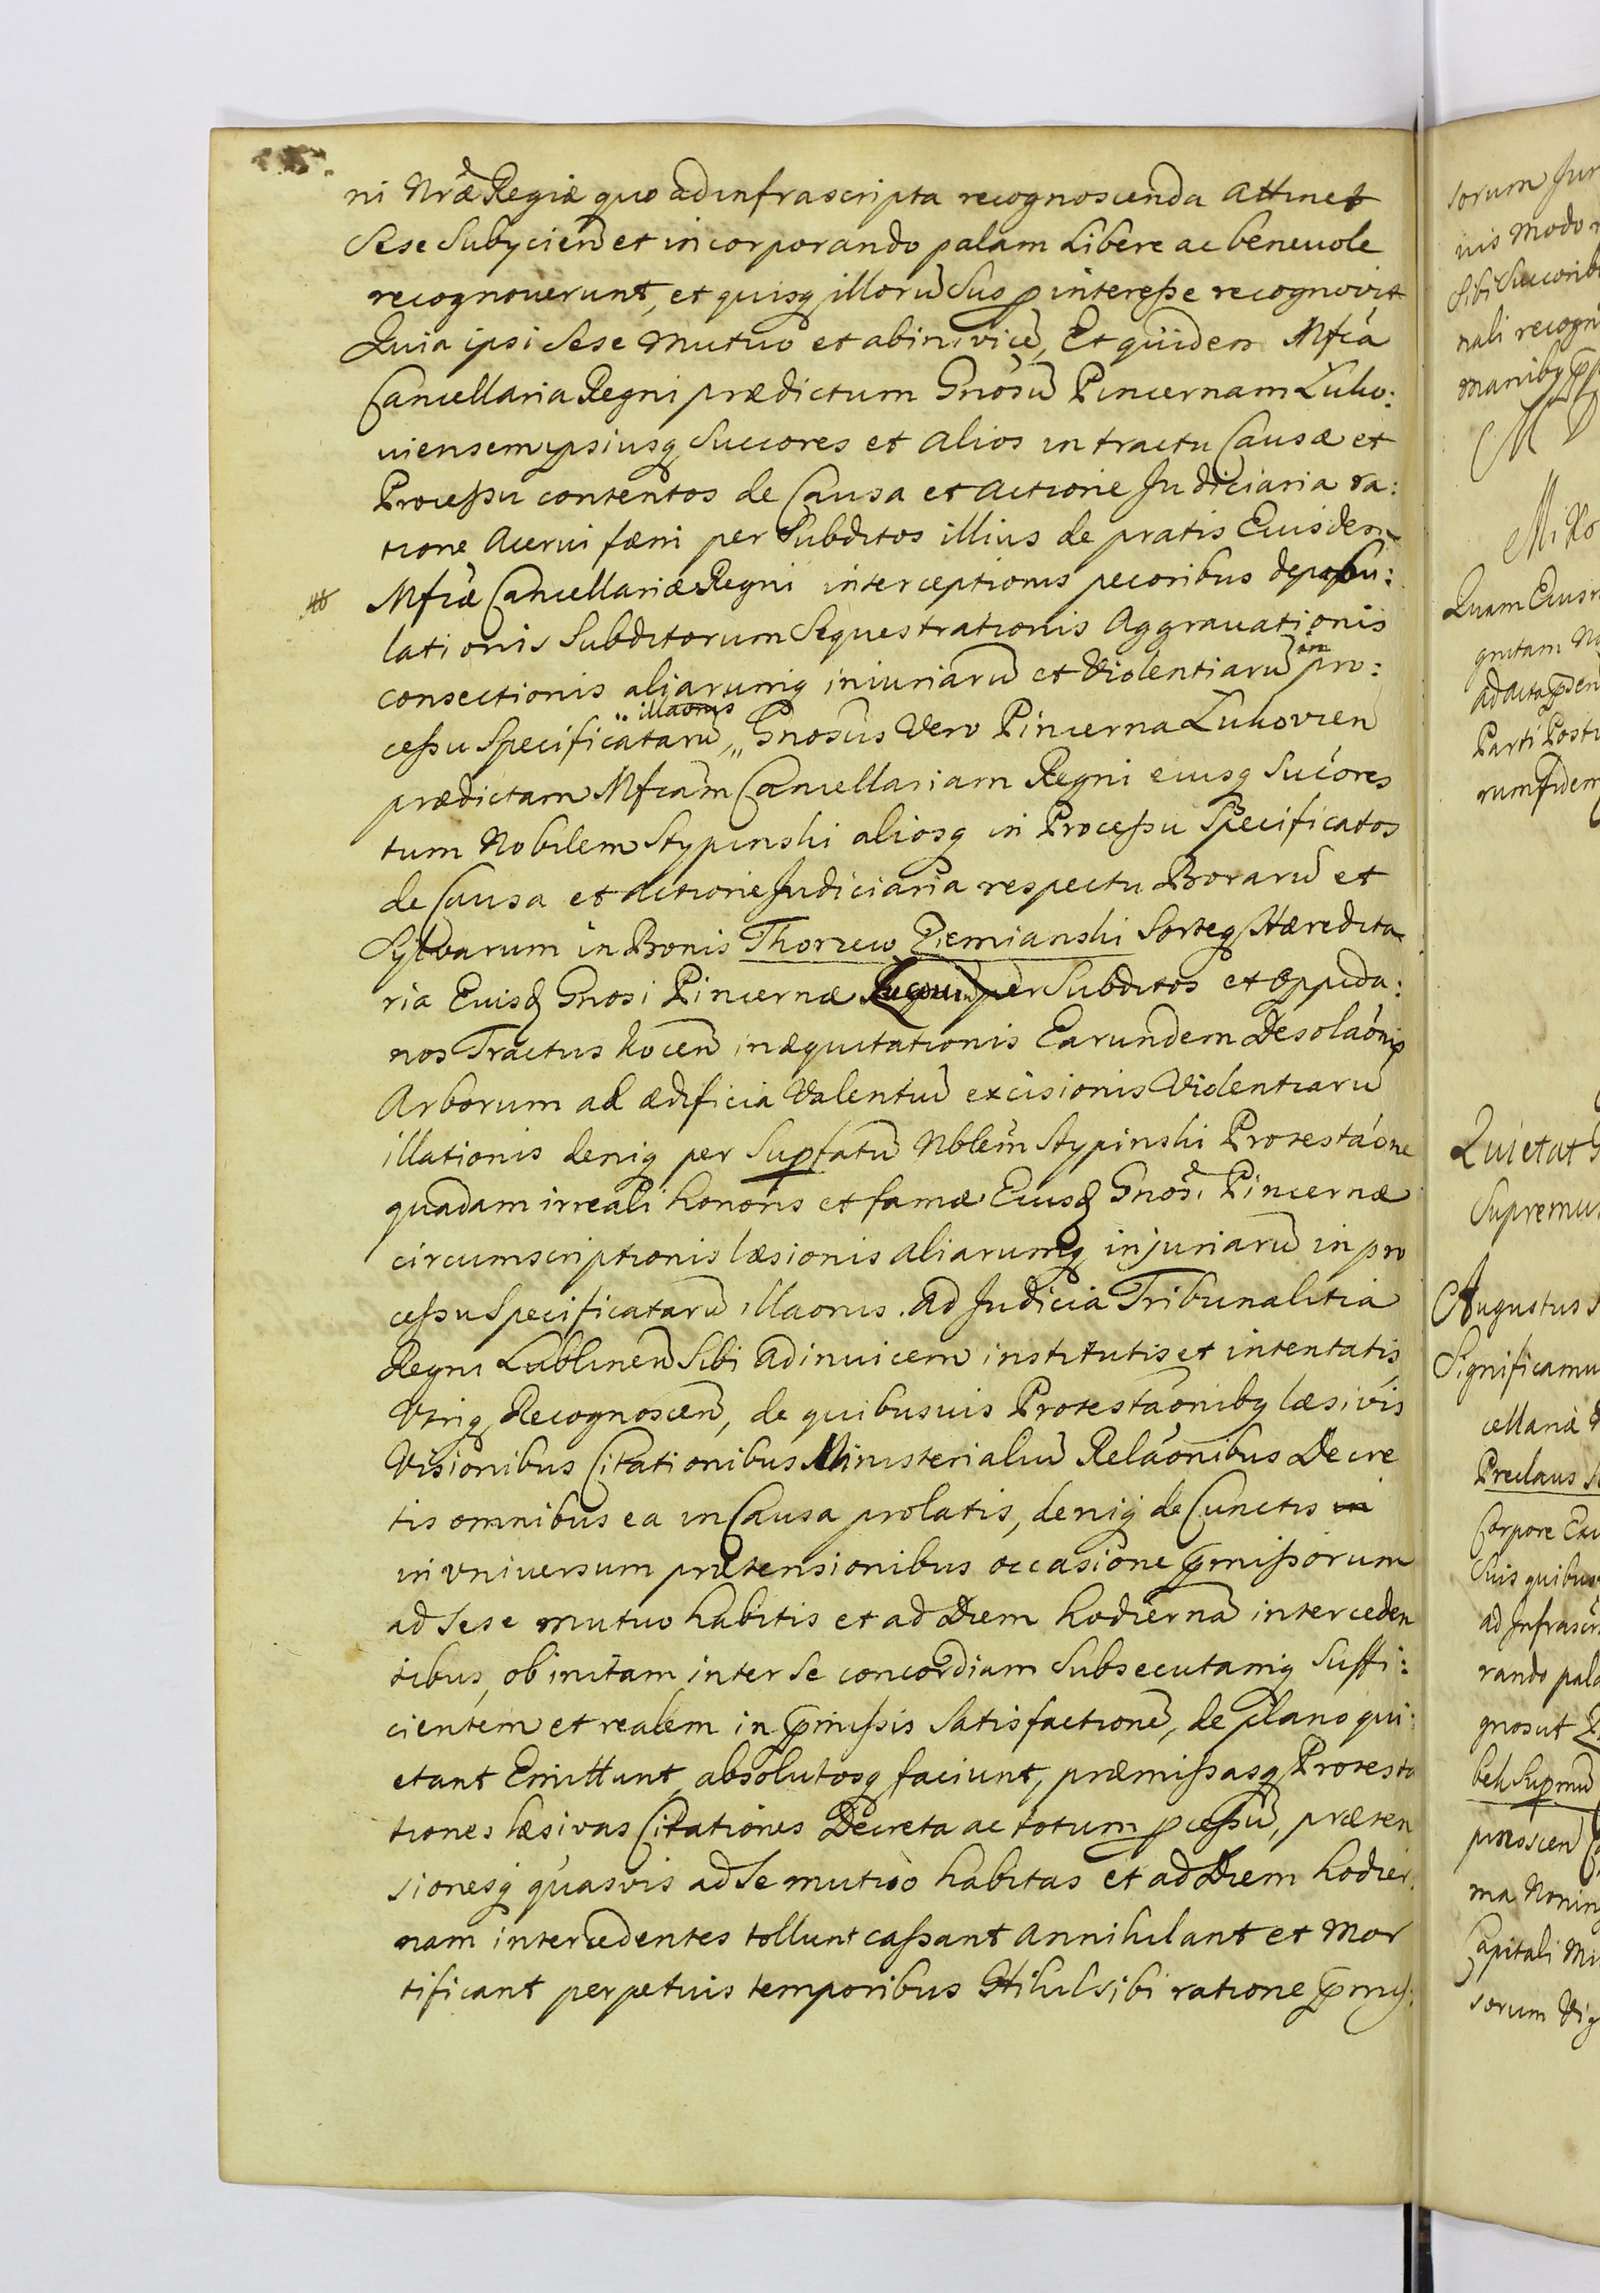 ni Nræ Regiæ quo ad infrascripta recognoscenda attinet
Sese Subycień et incorporando palam Libere ac beneuole
recognouerunt, et quisq illorū Suo p interesse recognovit
Quia ipsi Sese Mutuo et abinivicē, Et quidem Mfca
Cancellaria Regni prædictum Gnosū Pincernam Luko:
uiensem ipsiusq Succores et alios in tractu Causæ et
Processu contentos de Causa et actione Judiciaria ra:
tione Acerui fæni per Subditos illius de pratis Eiusdem
Mfcæ Cancellariæ Regni interceptionis pecoribus depascu:
lationis Subditorum Sequestrationis Aggrauationis
consectionis aliarumq iniuriarū et Violentiarū in pro:
cessu Specificatarū illaonis, Gnosus Vero Pincerna Lukovien
prædictam Mfcam Cancellariam Regni eiusq Sucores
tum Nobilem Stypinski aliosq in Processu Specificatos
de Causa et actione Judiciaria respectu Borarū et
Sylvarum in Bonis Thorzew Ziemianski Sorteq Hæredita
ria Eiusd Gnosi Pincernæ per Subditos et Oppida:
nos Tractus Kocen inæquitationis Earundem Desolaonis
Arborum ad ædificia Valentiū excisionis Violentiarū
illationis deniq per Supfatū Nblem Stypinski Protestaone
quadam irreali honoris et famæ Eiusd Gnosi Pincernæ
circumscriptionis læsionis aliarumq injuriarū in pro
cessu Specificatarū illaonis. ad Judicia Tribunalitia
Regni Lublinen Sibi adinuicem institutis et intentatis,
Vtriq Recognoscen, de quibusuis Protestaonibq læsivis
Visionibus Citationibus Ministerialiū Relaonibus Decre
tis omnibus ea in Causa prolatis, deniq de Cunctis in
in vniuersum prætensionibus occasione pmissorum
ad Sese mutuo habitis et ad Diem hodiernā interceden
tibus, ob initam inter Se concordiam Subsecutamq Suffi:
cientem et realem in pmissis Satisfactionē, de plano qui:
etant Emittunt absolutosq faciunt, præmissasq Protesta
tiones læsivas Citationes Decreta ac totum pcessū, præten
sionesq quasvis ad Se mutuo habitas et ad Diem hodier:
nam intercedentes tollunt cassant annihilant et Mor
tificant perpetuis temporibus Nihil sibi ratione pmis:
sorum Jur
uis modo
Sibi Succorib
nali recogn
manibq
Quam Eius
gnitam No
ad acta
Parti Postu
rum fidem
Quietat
Supremus
Augustus
Significamu
cellariæ
Preclaus
Corpore
Suis quibus
ad Infrascr
rando pala
gnosut
ma Nonin
Capitali Mi
sorum Vig